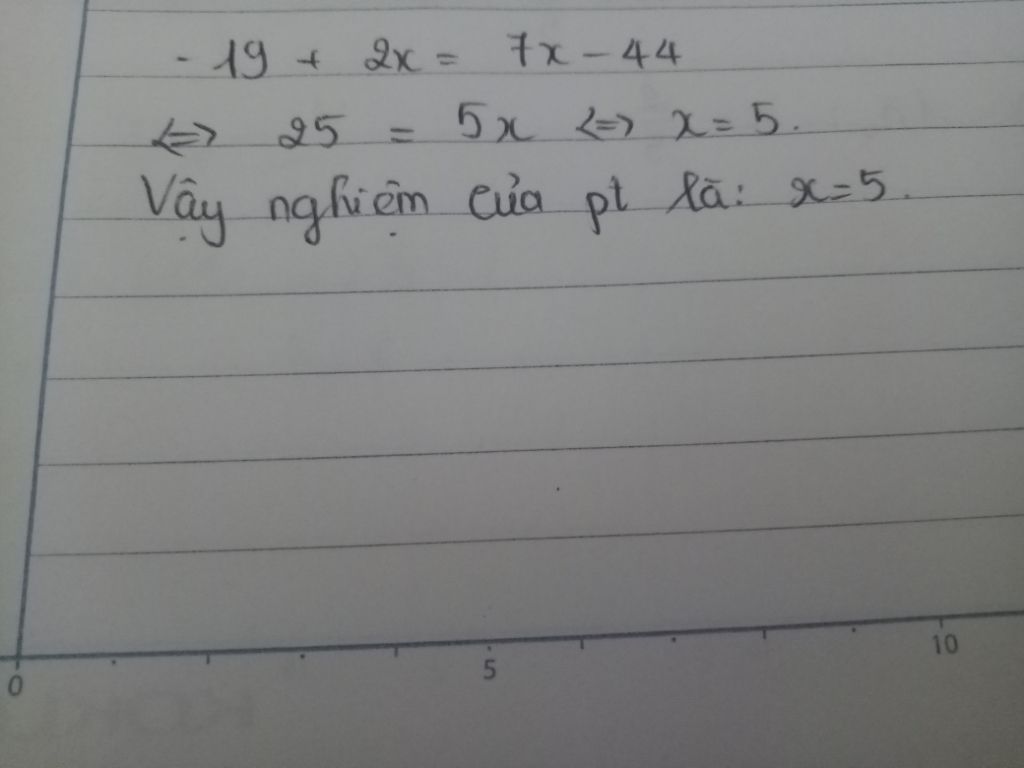 - 19 + 2x = 7x - 44
<=> 25 = 5x <=> x = 5.
Vậy nghiệm của pt là: x = 5.
0 5 10